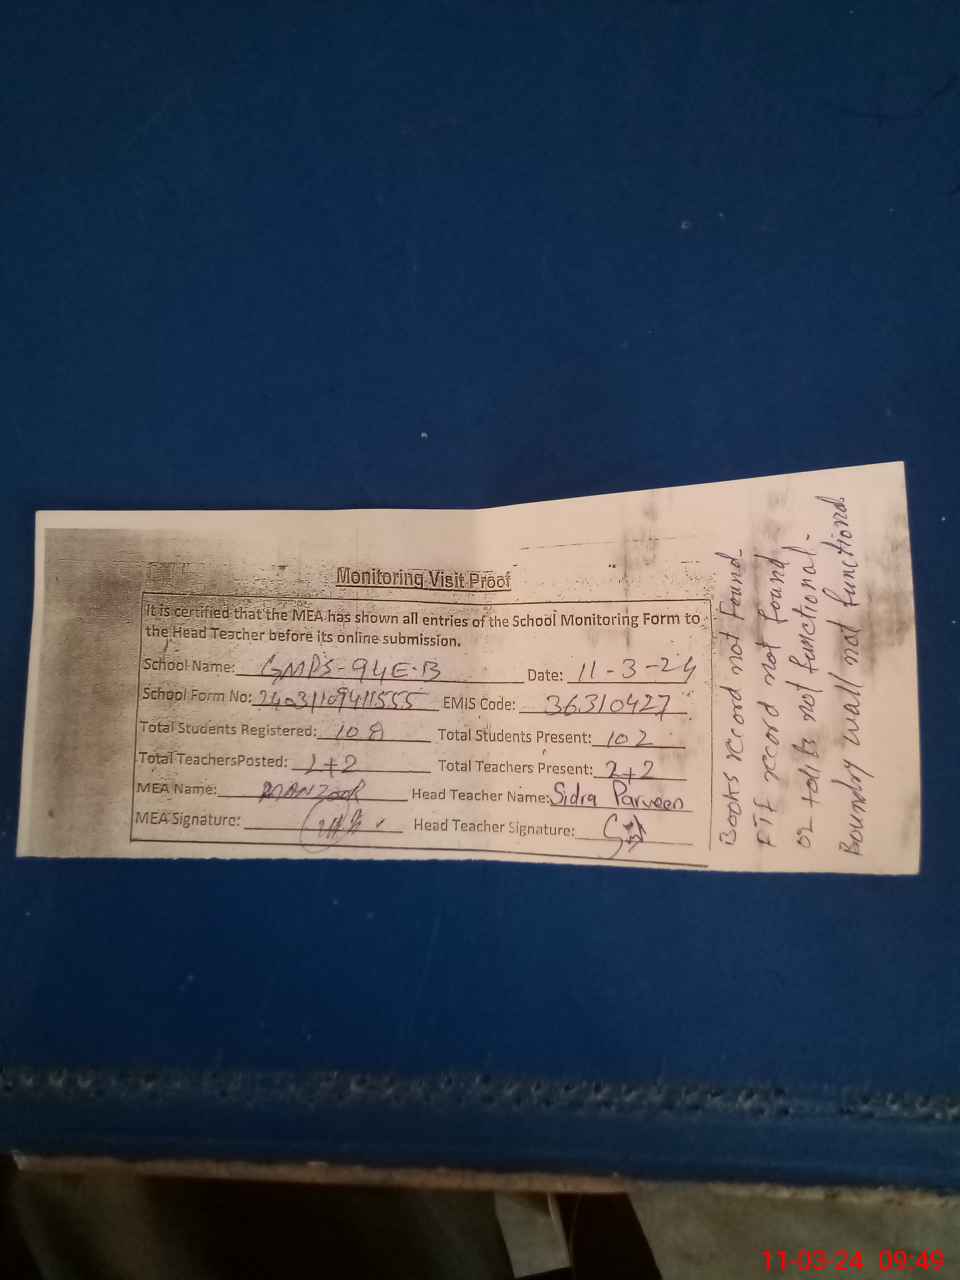 Monitoring Visit Proof
It is certified that the MEA has shown all entries of the School Monitoring Form to
the Head Teacher before its online submission.
School Name: GMPS-94E-B Date: 11-3-24
School Form No: 24031109411555 EMIS Code: 36310427
Total Students Registered: 108 Total Students Present: 102
Total TeachersPosted: 2+2 Total Teachers Present: 2+2
MEA Name: MANZOOR Head Teacher Name: Sidra Parveen
MEA Signature: Head Teacher Signature:
Books record not Found.
record not found
02 toilts not functional.
Boundry wall not functional.
11-03-24 09:49